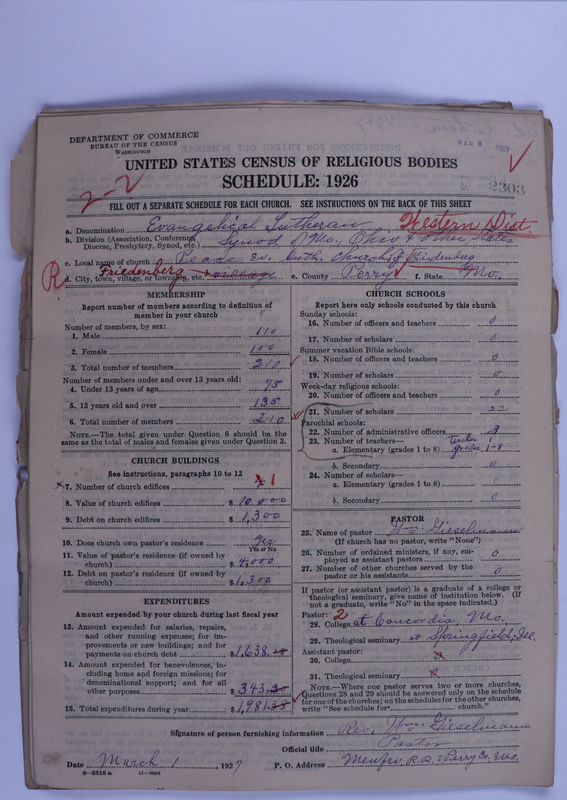 DEPARTMENT OF COMMERCE
BUREAU OF THE CENSUS
WASHINGTON
UNITED STATES CENSUS OF RELIGIOUS BODIES
SCHEDULE: 1926
2-2
2303
FILL OUT A SEPARATE SCHEDULE FOR EACH CHURCH. SEE INSTRUCTIONS ON THE BACK OF THIS SHEET
a. Denomination Evangelical Lutheran Western Dist.
b. Division (Association, Conference, Diocese, Presbytery, Synod, etc.) Synod of Mo., Ohio & Other States
c. Local name of church Peace Ev. Luth. Church of Friedenberg
R d. City, town, village, or township, etc. Friedenberg village e. County Perry f. State Mo.
MEMBERSHIP
Report number of members according to definition of
member in your church
Number of members, by sex:
1. Male 110
2. Female 100
3. Total number of members 210
Number of members under and over 13 years old:
4. Under 13 years of age 75
5. 13 years old and over 135
6. Total number of members 210
NOTE.—The total given under Question 6 should be the
same as the total of males and females given under Question 3.
CHURCH BUILDINGS
See instructions, paragraphs 10 to 12
7. Number of church edifices 1
8. Value of church edifices $ 10,000
9. Debt on church edifices $ 1,300
10. Does church own pastor's residence Yes
Yes or No
11. Value of pastor's residence (if owned by
church) $ 4,000
12. Debt on pastor's residence (if owned by
church) $ 1,300
EXPENDITURES
Amount expended by your church during last fiscal year
13. Amount expended for salaries, repairs,
and other running expenses; for im-
provements or new buildings; and for
payments on church debt $ 1,638.18
14. Amount expended for benevolences, in-
cluding home and foreign missions; for
denominational support; and for all
other purposes $ 343.20
15. Total expenditures during year $ 1,981.38
CHURCH SCHOOLS
Report here only schools conducted by this church
Sunday schools:
16. Number of officers and teachers 0
17. Number of scholars 0
Summer vacation Bible schools:
18. Number of officers and teachers 0
19. Number of scholars 0
Week-day religious schools:
20. Number of officers and teachers 0
21. Number of scholars
Parochial schools:
22. Number of administrative officers 3
23. Number of teachers—
a. Elementary (grades 1 to 8) teacher 1 grades 1-8
b. Secondary 0
24. Number of scholars—
a. Elementary (grades 1 to 8) 0
b. Secondary 0
PASTOR
25. Name of pastor Wm. Gieselmann
(If church has no pastor, write "None")
26. Number of ordained ministers, if any, em-
ployed as assistant pastors 0
27. Number of other churches served by the
pastor or his assistants 0
If pastor (or assistant pastor) is a graduate of a college or
theological seminary, give name of institution below. (If
not a graduate, write "No" in the space indicated.)
Pastor: 2
28. College at Concordia, Mo.
29. Theological seminary at Springfield, Ill.
Assistant pastor:
30. College
31. Theological seminary
NOTE.—Where one pastor serves two or more churches,
Questions 28 and 29 should be answered only on the schedule
for one of the churches; on the schedules for the other churches,
write "See schedule for church."
Signature of person furnishing information Rev. Wm. Gieselmann
Official title Pastor
Date March 1, 1927 P. O. Address Menfro, R.R. 1 Perry Co., Mo.
8-5518 a 11-9084